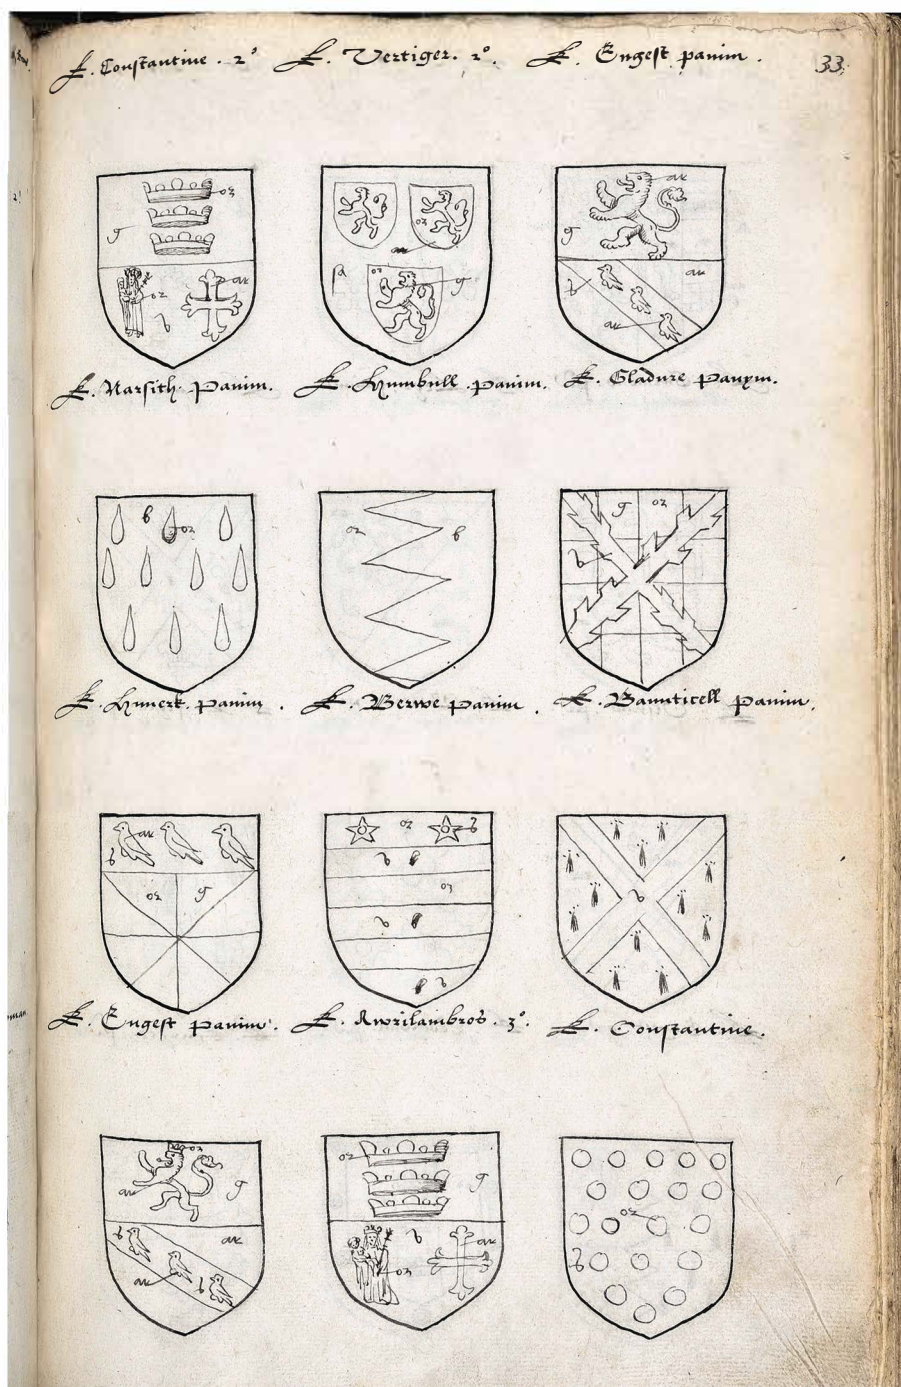 k. Constantine . 2° k. Vertiger . 2°. k. Engest panim . 33
or
g
or b ar
ar
or
a or g
ar
g
b ar
ar
k. Narsith. Panim. k. Humbull . panim. k. Gladure Panym.
b or
or b
g or
b
k. Hunerk. panim . k. Berwe panim . k. Bannticell panim.
ar
b
or g
or b
b
or
b
b
b
k. Engest panim. k. Awrilambros . 3°. k. Constantine.
or
ar g
b ar
ar b
or g
b ar
or
or
b